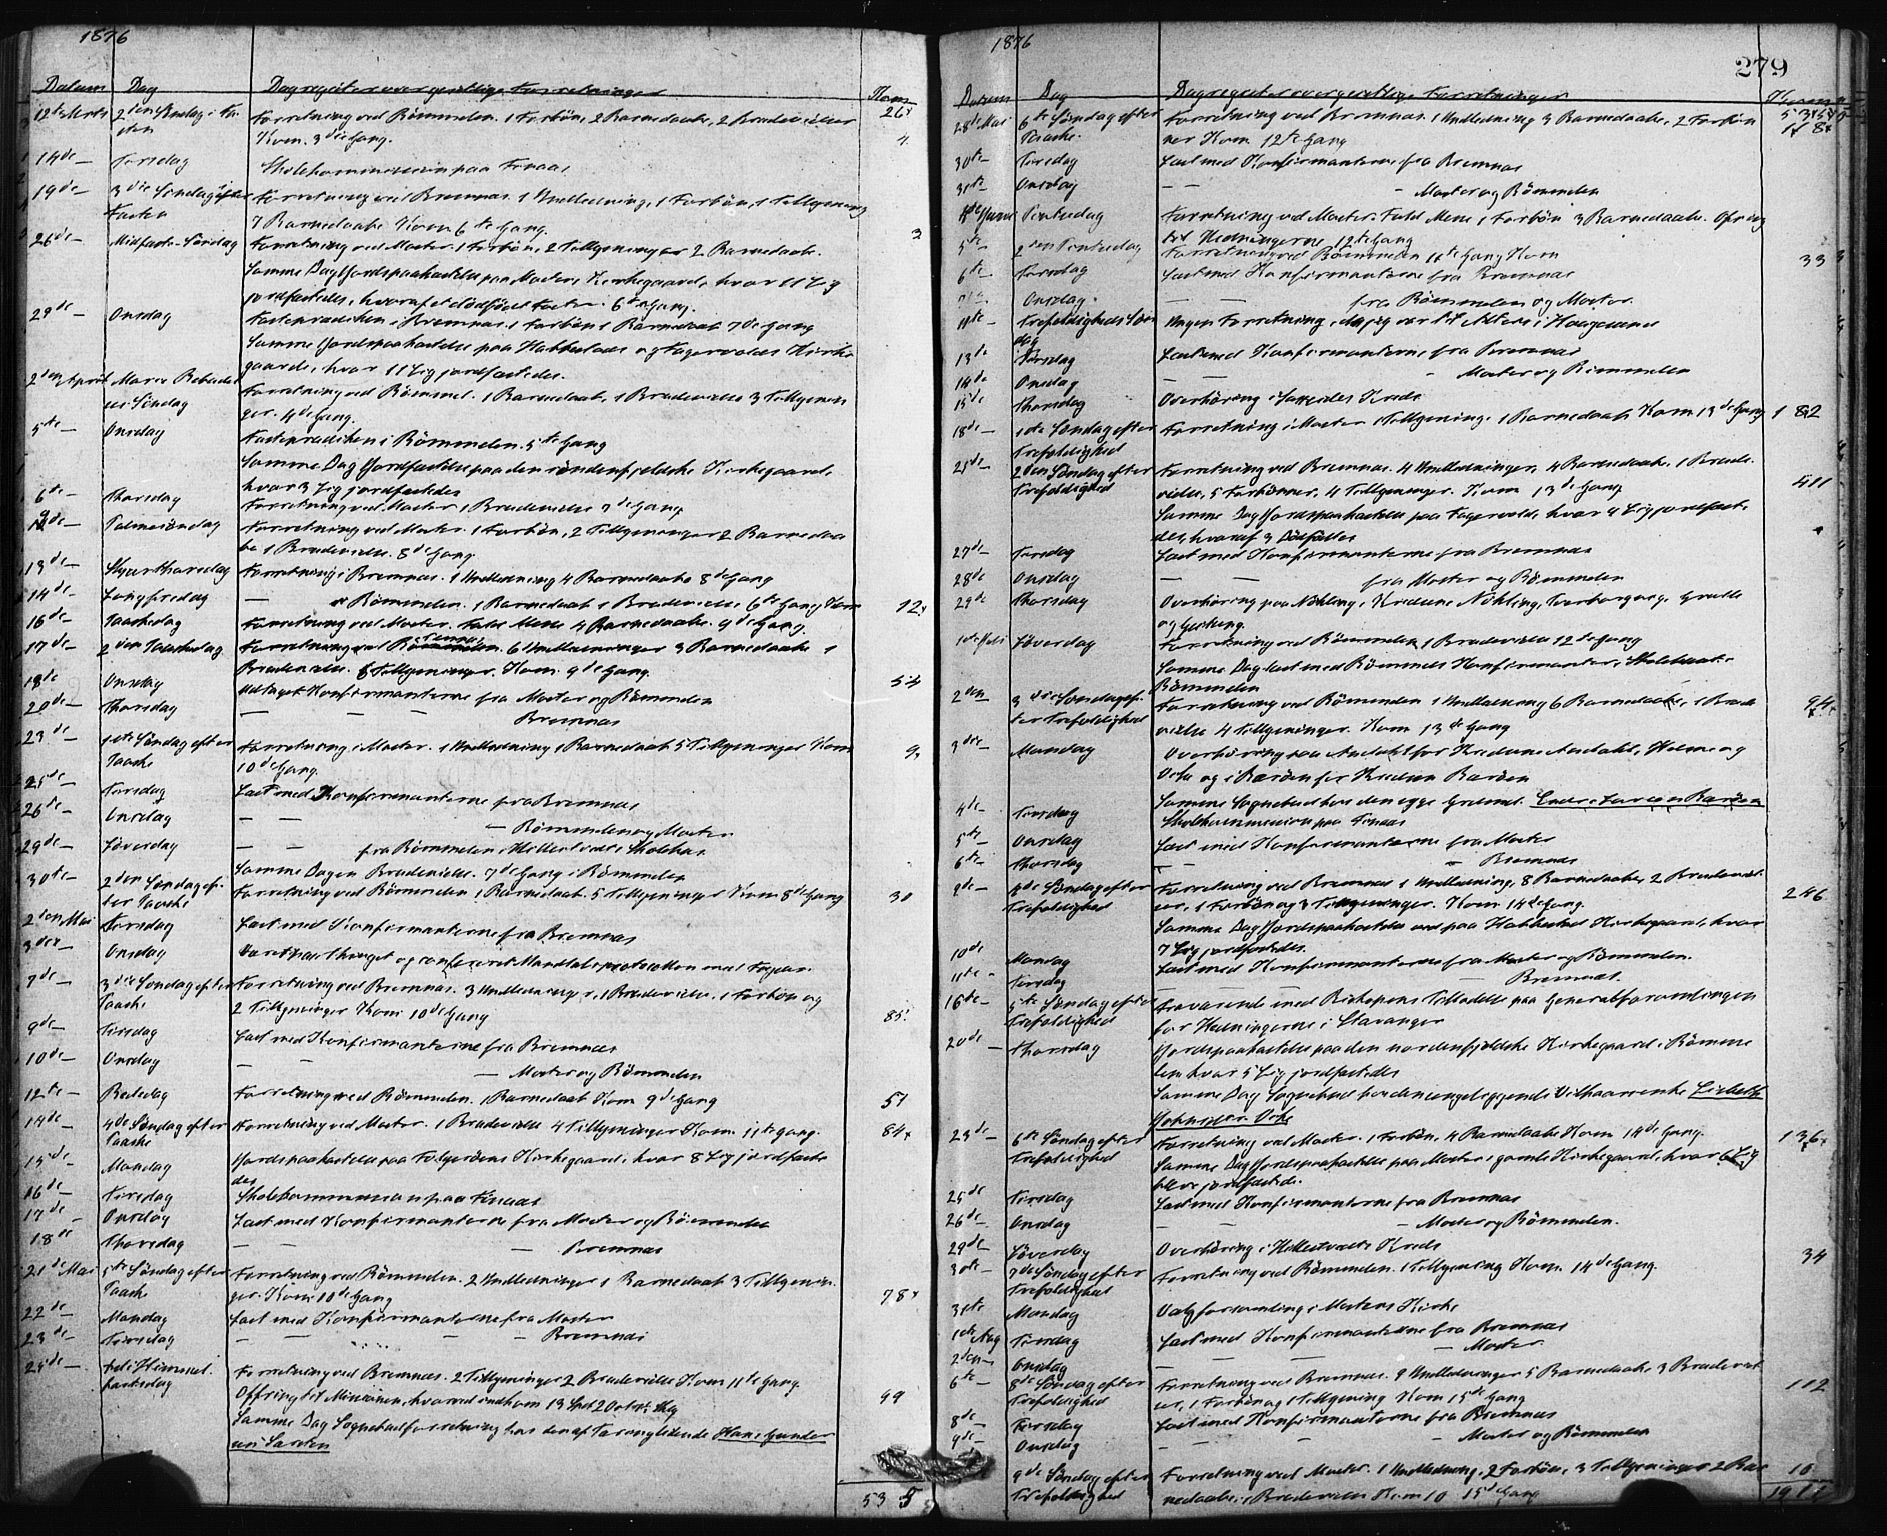 1876
Datum Dag Dagregister over geistlige Forretninger Kom
12te Marts 2den Søndag i Fa- Forretning ved Bømmelen. 1 Forbøn, 2 Barnedaabe, 2 Brudevielser
sten Kom. 3die Gang. 4
14de — Tirsdag Skolekommission paa Finaas
19de — 3die Søndag i Forretning ved Bremnæs. 1 Indledning, 1 Forbøn, 1 Tillysning
Fasten 7 Barnedaabe Kom 6te Gang.
26de — Midfaste-Søndag Forretning ved Moster. 1 Forbøn, 2 Tillysninger 2 Barnedaabe.
Samme Dag Jordspaakastelse paa Moster Kirkegaard, hvor 11 Lig
jordfæstedes, hvoraf et dødfødt Foster. 6te Gang.
29de — Onsdag Fasteprædiken i Bremnæs. 1 Forbøn 1 Barnedaab 7de Gang
Samme Jordspaakastelse paa Habbestads og Fagervolds Kirke-
gaarde, hvor 11 Lig jordfæstedes.
2den April Mariæ Bebudel- Forretning ved Bømmel. 1 Barnedaab, 1 Brudevielse 3 Tillysnin-
ses Søndag ger. 4de Gang.
5te — Onsdag Fasteprædiken i Bømmelen. 5te Gang
Samme Dag Jordfæstelse paa den søndenfjeldske Kirkegaard,
hvor 3 Lig jordfæstedes
6te — Thorsdag Forretning ved Moster 1 Brudevielse 7de Gang
9de — Palmesøndag Forretning ved Moster. 1 Forbøn, 2 Tillysninger 2 Barnedaa-
be 1 Brudevielse. 8de Gang
13de — Skjærthorsdag Forretning i Bremnæs. 1 Indledning 4 Barnedaabe 8de Gang
14de — Langfredag — Bømmelen. 1 Barnedaab 1 Brudevielse 6te Gang Kom 12
16de — Paaskedag Forretning ved Moster. Fuld Messe 4 Barnedaabe. 9de Gang.
17de — 2den Paaskedag Forretning ved Bremnæs. 6 Indledninger 3 Barnedaabe 1
Brudevielse. 8 Tillysninger. Kom. 9de Gang. 54
18de Onsdag Udtaget Konfirmanterne fra Moster og Bømmelen
20de — Thorsdag — — — Bremnæs
23de — 1ste Søndag efter Forretning i Moster. 1 Indledning 1 Barnedaab 5 Tillysninger Kom 9
Paaske 10de Gang.
25de — Tirsdag Læst med Konfirmanterne fra Bremnæs
26de — Onsdag — — — Bømmelen og Moster
29de — Løverdag — — fra Bømmelen i Mellesvæds Skolehus
Samme Dag en Brudevielse. 7de Gang i Bømmelen
30te — 2den Søndag ef- Forretning ved Bømmelen 1 Barnedaab. 5 Tillysninger Kom 8de Gang 30
ter Paaske
2den Mai Tirsdag Læst med Konfirmanterne fra Bremnæs
3die — Onsdag Været paa thinget og confereret Mandtalsprotokollen med Fogden
7de — 3die Søndag efter Forretning ved Bremnæs. 3 Indledninger, 1 Brudevielse, 1 Forbøn og
Paaske 2 Tillysninger Kom 10de Gang 85
9de — Tirsdag Læst med Konfirmanterne fra Bremnæs
10de — Onsdag — — Moster og Bømmelen
12te — Bededag Forretning ved Bømmelen. 1 Barnedaab Kom 9de Gang 51
14de — 4de Søndag efter Forretning ved Moster. 1 Brudevielse 4 Tillysninger Kom. 11te Gang. 84
Paaske
15de — Mandag Jordspaakastelse paa Folgerøens Kirkegaard, hvor 8 Lig jordfæste-
des
16de — Tirsdag Skolekommission paa Finaas
17de — Onsdag Læst med Konfirmanterne fra Moster og Bømmelen
18de Thorsdag — — — Bremnæs
21de Mai 5te Søndag efter Forretning ved Bømmelen. 2 Indledninger 1 Barnedaab 3 Tillysnin-
Paaske ger. Kom 10de Gang 78
22de — Mandag Læst med Konfirmanterne fra Moster
23de — Tirsdag — — — — Bremnæs
25de — Kristi Himmel- Forretning ved Bremnæs. 2 Tillysninger 2 Brudevielse Kom 11te Gang
fartsdag Offring til Missionen, hvorved indkom 13 Spd 20 ort 99
Samme Dag Sognebudforretning hos den af Tæring lidende Hans Gunder-
sen Sarsten
53 5
1876 279
Datum Dag Dagregister over geistlige Forretninger Kom
28de Mai 6te Søndag efter Forretning ved Bremnæs. 1 Indledning 3 Barnedaabe, 2 Forbøn-
Paaske. ner Kom 12te Gang
30te — Tirsdag Læst med Konfirmanterne fra Bremnæs
31te — Onsdag — — — Moster og Bømmelen
4de Juni Pintsedag Forretning ved Moster. Fuld Messe 1 Forbøn 3 Barnedaabe. Ofring
til Hedningerne 12te Gang
5te — 2den Pintsedag Forretning ved Bømmelen 11te Gang Kom 33
6te — Tirsdag Læst med Konfirmanterne fra Bremnæs
Onsdag. — — fra Bømmelen og Moster.
11te — Trefoldigheds Søn- Ingen Forretning, da jeg var til Alters i Haugesund
dag
13de Tirsdag Læst med Konfirmanterne fra Bremnæs
14de Onsdag — — — Moster og Bømmelen
15de Thorsdag Overhøring i Kreds
18de — 1ste Søndag efter Forretning i Moster 1 Tillysning. 1 Barnedaab Kom 13de Gang 182
Trefoldighed
25de — 2den Søndag efter Forretning ved Bremnæs. 4 Indledninger, 4 Barnedaabe, 1 Brude-
Trefoldighed vielse, 5 Forbønner, 4 Tillysninger. Kom 13de Gang
Samme Dag Jordspaakastelse paa Fagervold, hvor 4 Lig jordfæste-
des, hvoraf 3 Dødfødte
27de — Tirsdag Læst med Konfirmanterne fra Bremnæs
28de Onsdag — — fra Moster og Bømmelen
29de Thorsdag Overhøring paa Nøkling, i Kredsene Nøkling,
1ste Juli Løverdag Forretning ved Bømmelen 1 Brudevielse 12te Gang
Samme Dag læst med Bømmels Konfirmanter i Skolehuset i
Bømmelen
2den 3die Søndag ef- Forretning ved Bømmelen 1 Indledning 6 Barnedaabe, 1 Brude- 94
ter Trefoldighed vielse 4 Tillysninger. Kom 13de Gang
3die — Mandag Overhøring paa Andahl for Kredsene Andahl, Holme og
Orke og i Barøen for Kredsen Barøen
Samme Sognebud hos den syge Endre Larsen Barøen
4de — Tirsdag Skolekommission paa Finaas
5te — Onsdag Læst med Konfirmanterne fra Moster
6te — Thorsdag — — Bremnæs
9de — 4de Søndag efter Forretning ved Bremnæs 1 Indledning, 8 Barnedaabe, 2 Brudeviel- 246
Trefoldighed ser, 1 Forbøn og 3 Tillysninger. Kom 14de Gang.
Samme Dag Jordspaakastelse ved paa Habbestad Kirkegaard, hvor
7 Lig jordfæstedes.
10de Mandag Læst med Konfirmanterne fra Moster og Bømmelen.
11te — Tirsdag — — — Bremnæs.
16de — 5te Søndag efter Fraværende med Biskopens Tilladelse paa Generalforsamlingen
Trefoldighed for Hedningerne i Stavanger
20de — Thorsdag Jordspaakastelse paa den nordenfjeldske Kirkegaard i Bømme-
len hvor 5 Lig jordfæstedes
Samme Dag Sognebud hos den sengeliggende Lisbeth
Orke
23de — 6te Søndag efter Forretning ved Moster. 1 Forbøn, 4 Barnedaabe Kom 14de Gang. 136
Trefoldighed Samme Dag Jordspaakastelse paa Moster gamle Kirkegaard, hvor 6 Lig
bleve jordfæstede.
25de Tirsdag Læst med Konfirmanterne fra Bremnæs
26de — Onsdag — — — Moster og Bømmelen.
29de — Løverdag Overhøring i Kreds
30te — 7de Søndag efter Forretning ved Bømmelen. 1 Tillysning Kom 14de Gang. 34
Trefoldighed
31te Mandag Valgforsamling i Mosters Kirke
1ste Aug Tirsdag Læst med Konfirmanterne fra Bremnæs
2den — Onsdag — — — Moster
6te — 8de Søndag efter Forretning ved Bremnæs. 9 Indledninger 5 Barnedaabe 3 Brudeviel- 112
Trefoldighed ser, 1 Forbøn og 1 Tillysning Kom 15de Gang
8de — Tirsdag Læst med Konfirmanterne fra Bremnæs
9de — Onsdag — — — Moster og Bømmelen
9de Søndag efter Forretning ved Moster. 1 Indledning, 2 Forbøn, 3 Tillysninger 2 Bar-
Trefoldighed nedaabe, 1 Brudevielse Kom 15de Gang